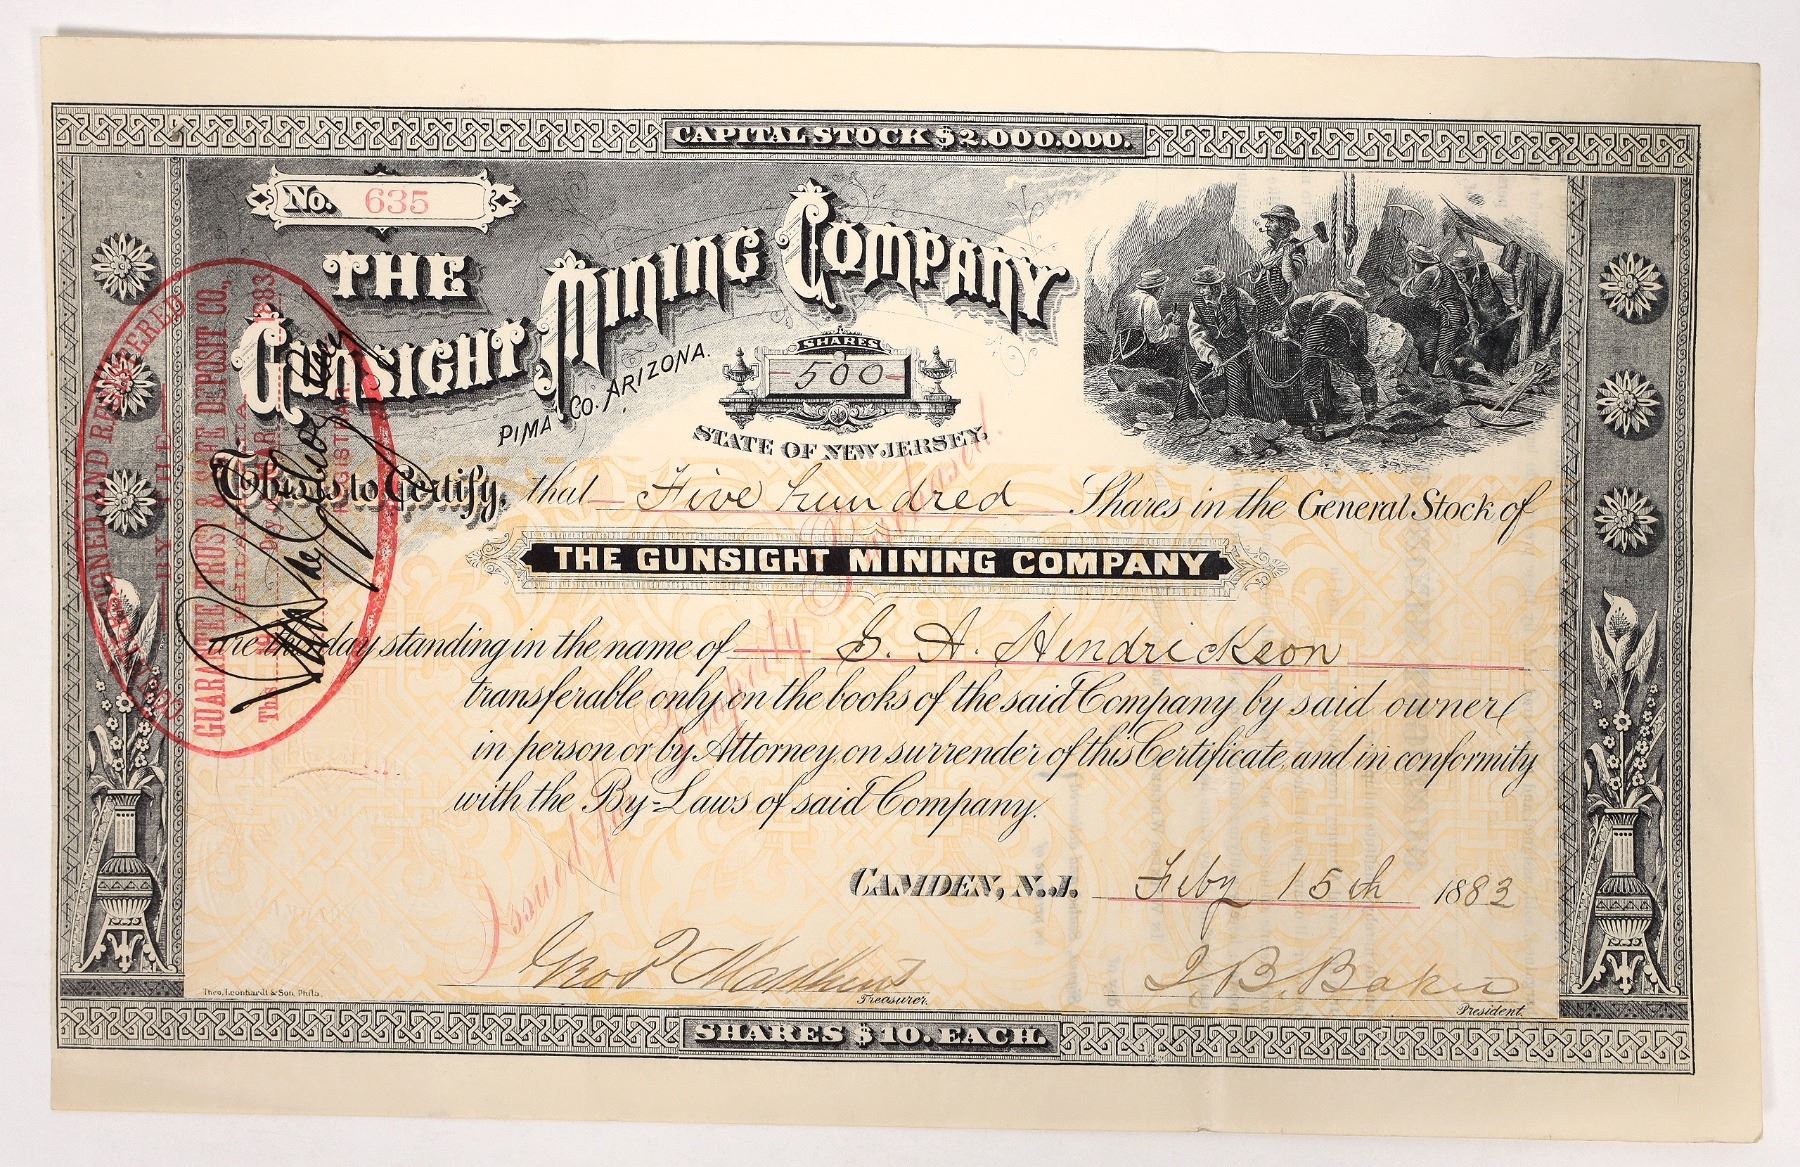 CAPITAL STOCK $2.000.000.
No. 635
THE
GUNSIGHT MINING COMPANY
PIMA CO. ARIZONA.
SHARES
500
STATE OF NEW JERSEY.
This is to Certify, that Five hundred Shares in the General Stock of
THE GUNSIGHT MINING COMPANY
are this day standing in the name of G. A. Hendrickson
transferable only on the books of the said Company by said owner
in person or by Attorney, on surrender of this Certificate, and in conformity
with the By-Laws of said Company.
Issued for Property Purchased.
CAMDEN, N.J. Feby 15th 1883
Treasurer.
President.
Theo. Leonhardt & Son, Phila.
SHARES $10. EACH.
COUNTERSIGNED AND REGISTERED
BY THE
GUARANTEE TRUST & SAFE DEPOSIT CO.,
PHILADELPHIA
This day of 1883
REGISTRAR